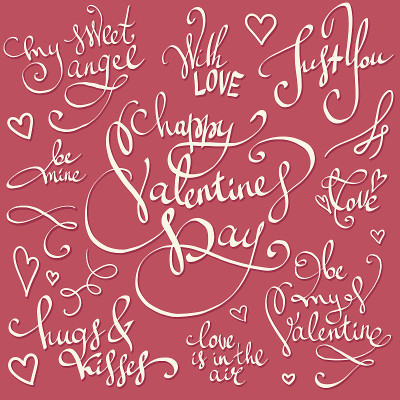 my sweet
angel
With
LOVE
Just You
happy
Valentines
Day
be
mine
Love
be
my
Valentine
hugs &
kisses
love
is in the
air